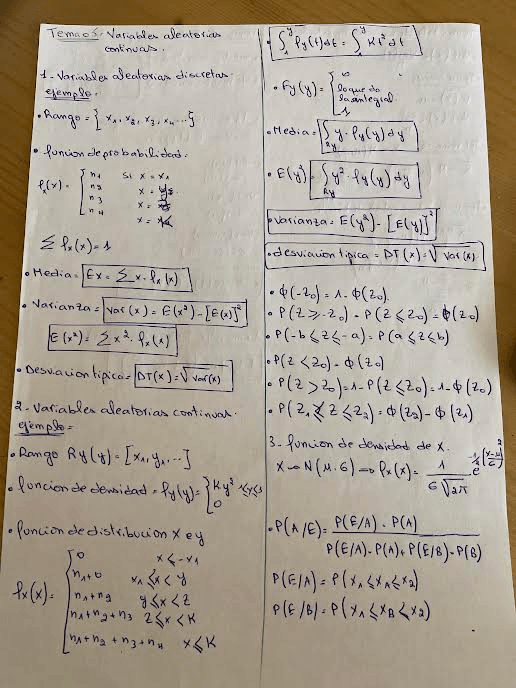 Tema 05: Variables aleatorias
continuas.
1- Variables aleatorias discretas.
ejemplo.
• Rango = { x1, x2, x3, x4 ...}
• función de probabilidad.
fx(x) = { n1 si x = x1
n2 x =
n3 x =
n4 x =
Σ fx(x) = 1
• Media = Ex = Σ x · fx(x)
• Varianza = Var(x) = E(x²) - [E(x)]²
E(x²) = Σ x² · fx(x)
• Desviacion tipica = DT(x) = √var(x)
2- Variables aleatorias continuas.
ejemplo =
• Rango Ry(y) = [x1, y1, ...]
• funcion de densidad = fy(y) = { Ky² 1≤y≤1
0
• funcion de distribucion x e y
fx(x) = { 0 x ≤ -x1
n1+0 x1 ≤ x < y
n1+n2 y ≤ x < z
n1+n2+n3 z ≤ x < K
n1+n2+n3+n4 x ≤ K
• ∫₁^y fy(t)dt = ∫₁^y Kt² dt
• Fy(y) = { 0
lo que do
la integral.
1
• Media = ∫Ry y · fy(y) dy
• E(y²) = ∫Ry y² · fy(y) dy
• Varianza = E(y²) - [E(y)]²
• desviacion tipica = DT(x) = √var(x).
• Φ(-z0) = 1 - Φ(z0).
• P(Z ≥ -z0) = P(Z ≤ z0) = Φ(z0)
• P(-b ≤ Z ≤ -a) = P(a ≤ Z ≤ b)
• P(Z < z0) = Φ(z0)
• P(Z > z0) = 1 - P(Z ≤ z0) = 1 - Φ(z0)
• P(z1 ≤ Z ≤ z2) = Φ(z2) - Φ(z1)
3- funcion de densidad de X.
X → N(μ, σ) ⇒ fx(x) = 1 / σ√2π e^-½(x-μ/σ)²
• P(A/E) = P(E/A) · P(A) / P(E/A) · P(A) + P(E/B) · P(B)
P(E/A) = P(x1 ≤ xA ≤ x2)
P(E/B) = P(x1 ≤ xB ≤ x2)